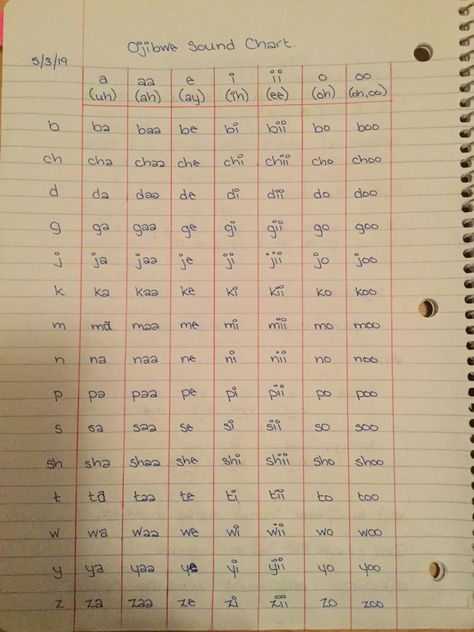 Ojibwe Sound Chart.
5/3/19
a aa e i ii o oo
(uh) (ah) (ay) (ih) (ee) (oh) (oh,oo)
b ba baa be bi bii bo boo
ch cha chaa che chi chii cho choo
d da daa de di dii do doo
g ga gaa ge gi gii go goo
j ja jaa je ji jii jo joo
k ka kaa ke ki kii ko koo
m mā maa me mi mii mo moo
n na naa ne ni nii no noo
p pa paa pe pi pii po poo
s sa saa se si sii so soo
sh sha shaa she shi shii sho shoo
t tā taa te ti tii to too
w wa waa we wi wii wo woo
y ya yaa ye yi yii yo yoo
z za zaa ze zi zii zo zoo